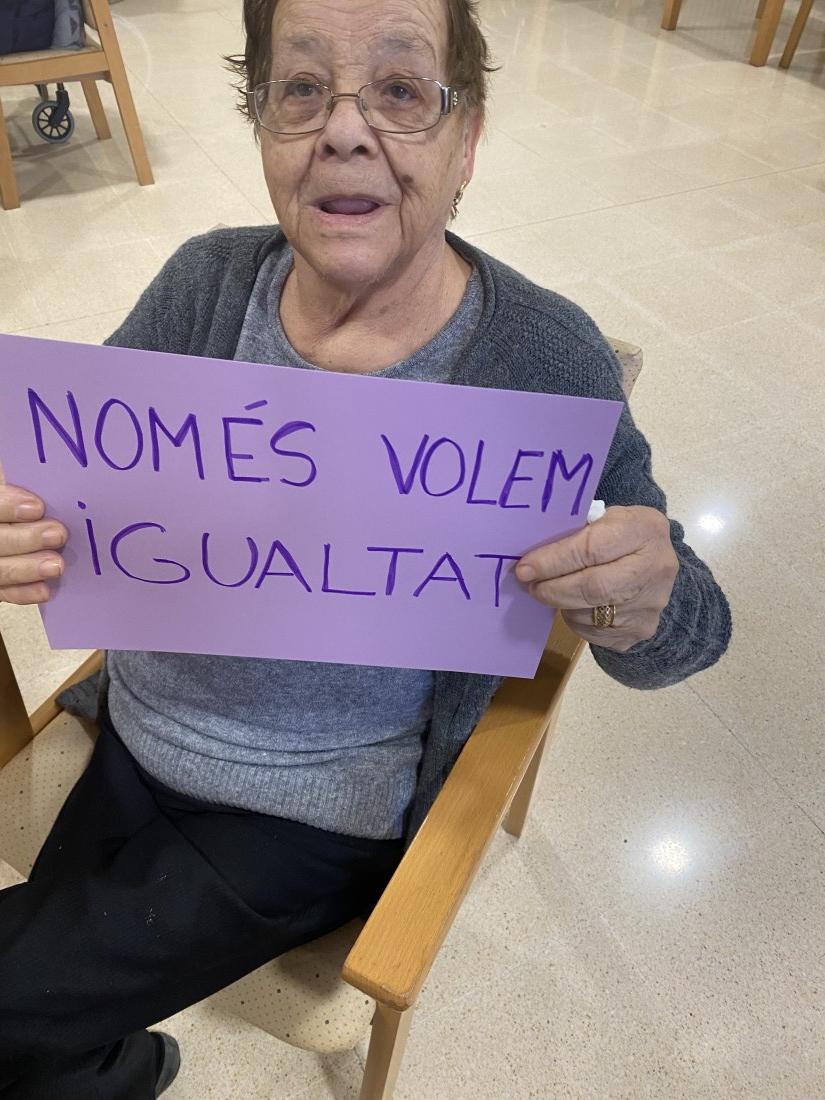 NOMÉS VOLEM
IGUALTAT